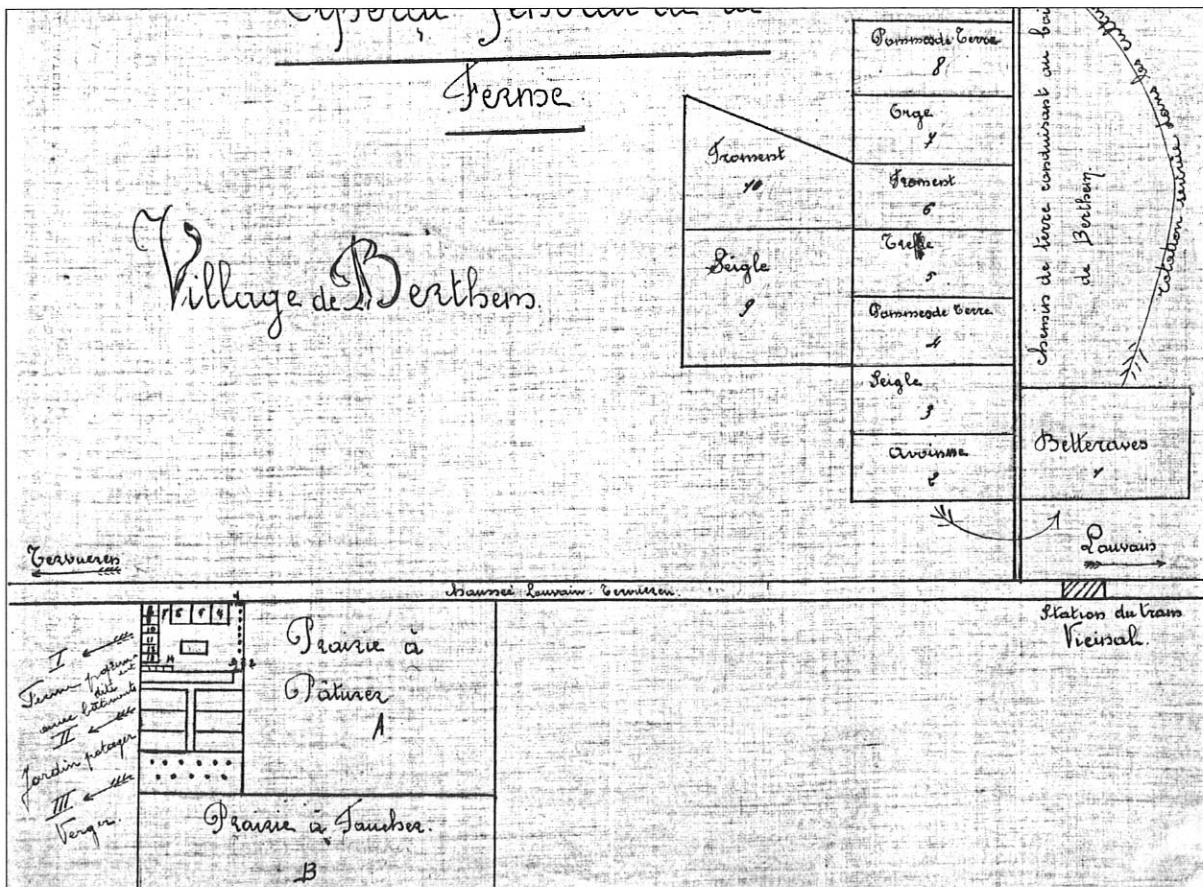 Ferme
Village de Berthem.
Pommes de Terre
8
Orge
7
Froment
6
Trefle
5
Pommes de Terre
4
Seigle
3
Avoinne
2
Froment
10
Seigle
9
chemin de terre conduisant au
de Berthem
rotation suivie dans les
Betteraves
1
Tervueren
Louvain
Chaussée Louvain-Tervueren.
Station du tram
Vicinal.
I
Ferme
avec bâtiments
II
Jardin potager
III
Verger.
Prairie à
Pâturer
A
Prairie à Faucher.
B